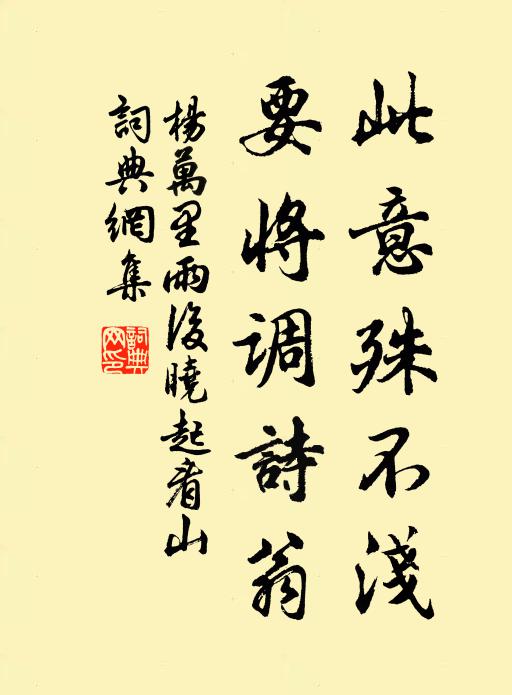 此意殊不淺
要将調詩翁
楊萬里雨後曉起看山
詞典網集
詞典網印